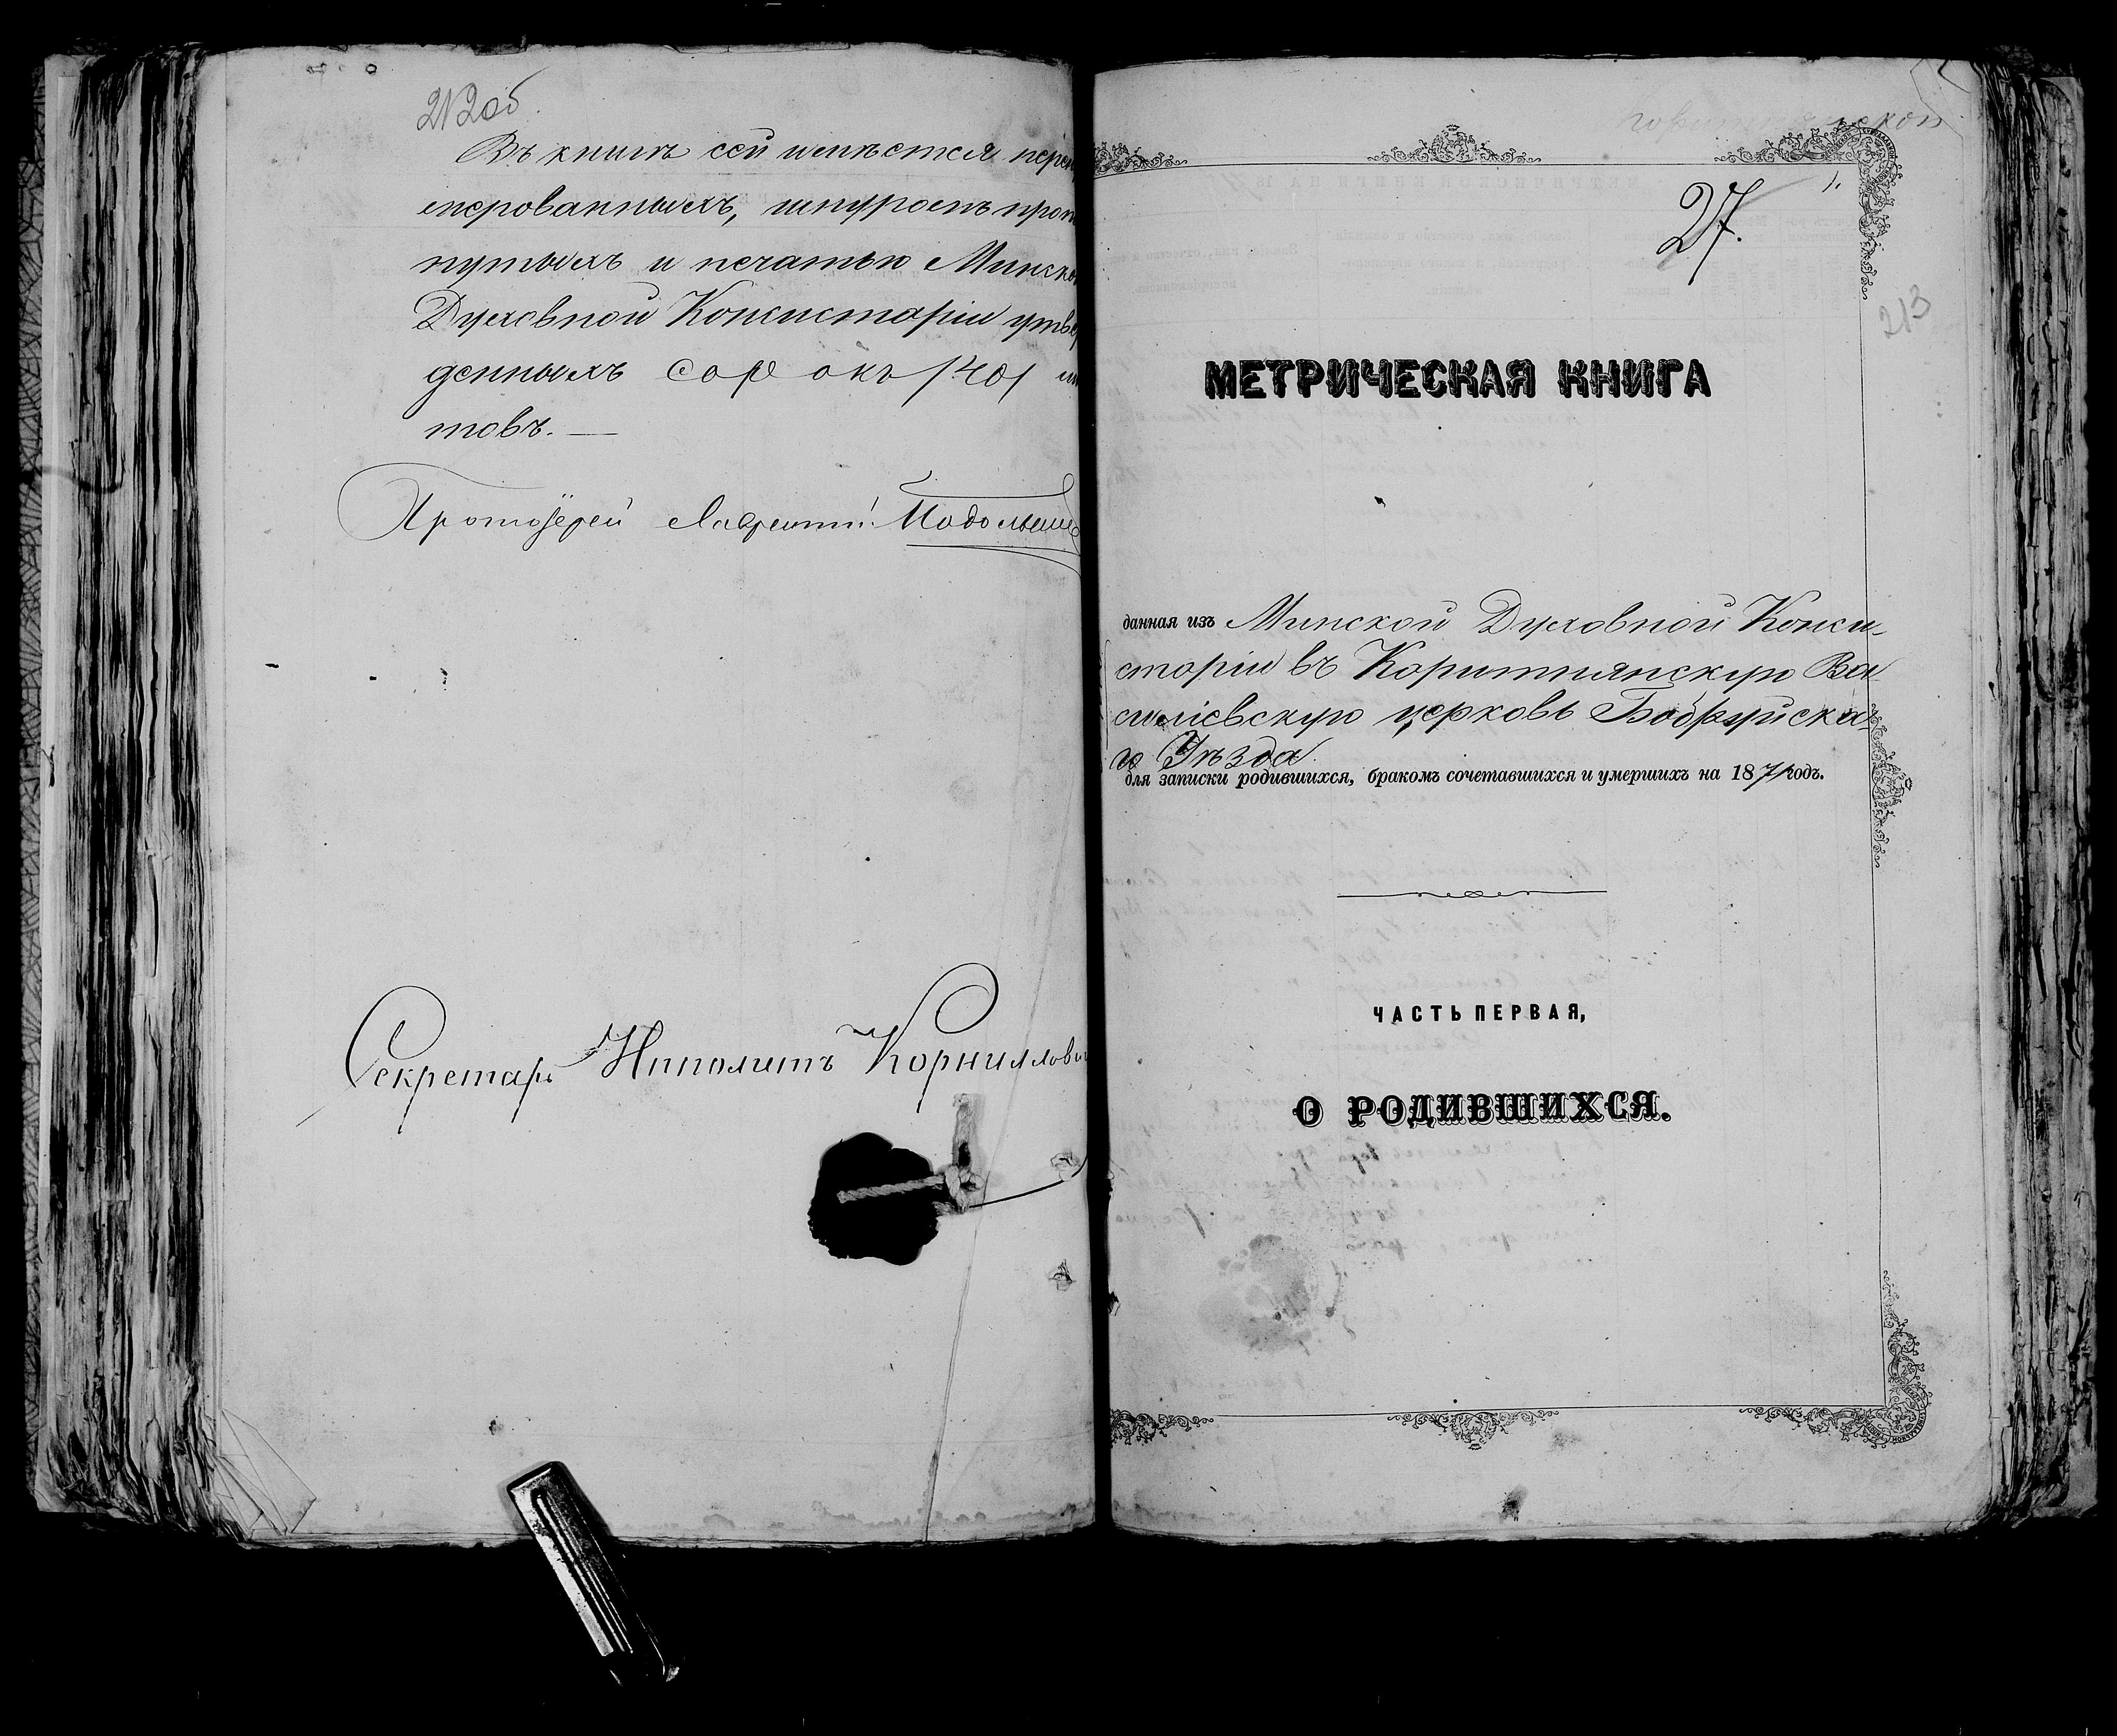 212об.
Въ книгѣ сей имѣется
мерованныхъ, шнуромъ
нутыхъ и печатью
Духовной Консисторіи
денныхъ сорокъ /40/
товъ. —
Протоіерей Лаврентій
Секретарь Ипполитъ
27.
1.
213
МЕТРИЧЕСКАЯ КНИГА
данная изъ Минской Духовной Конси-
сторіи въ Коритнянскую Ва
силіевскую церковь Бобруйска-
го Уѣзда
для записки родившихся, бракомъ сочетавшихся и умершихъ на 1871 годъ.
ЧАСТЬ ПЕРВАЯ,
О РОДИВШИХСЯ.